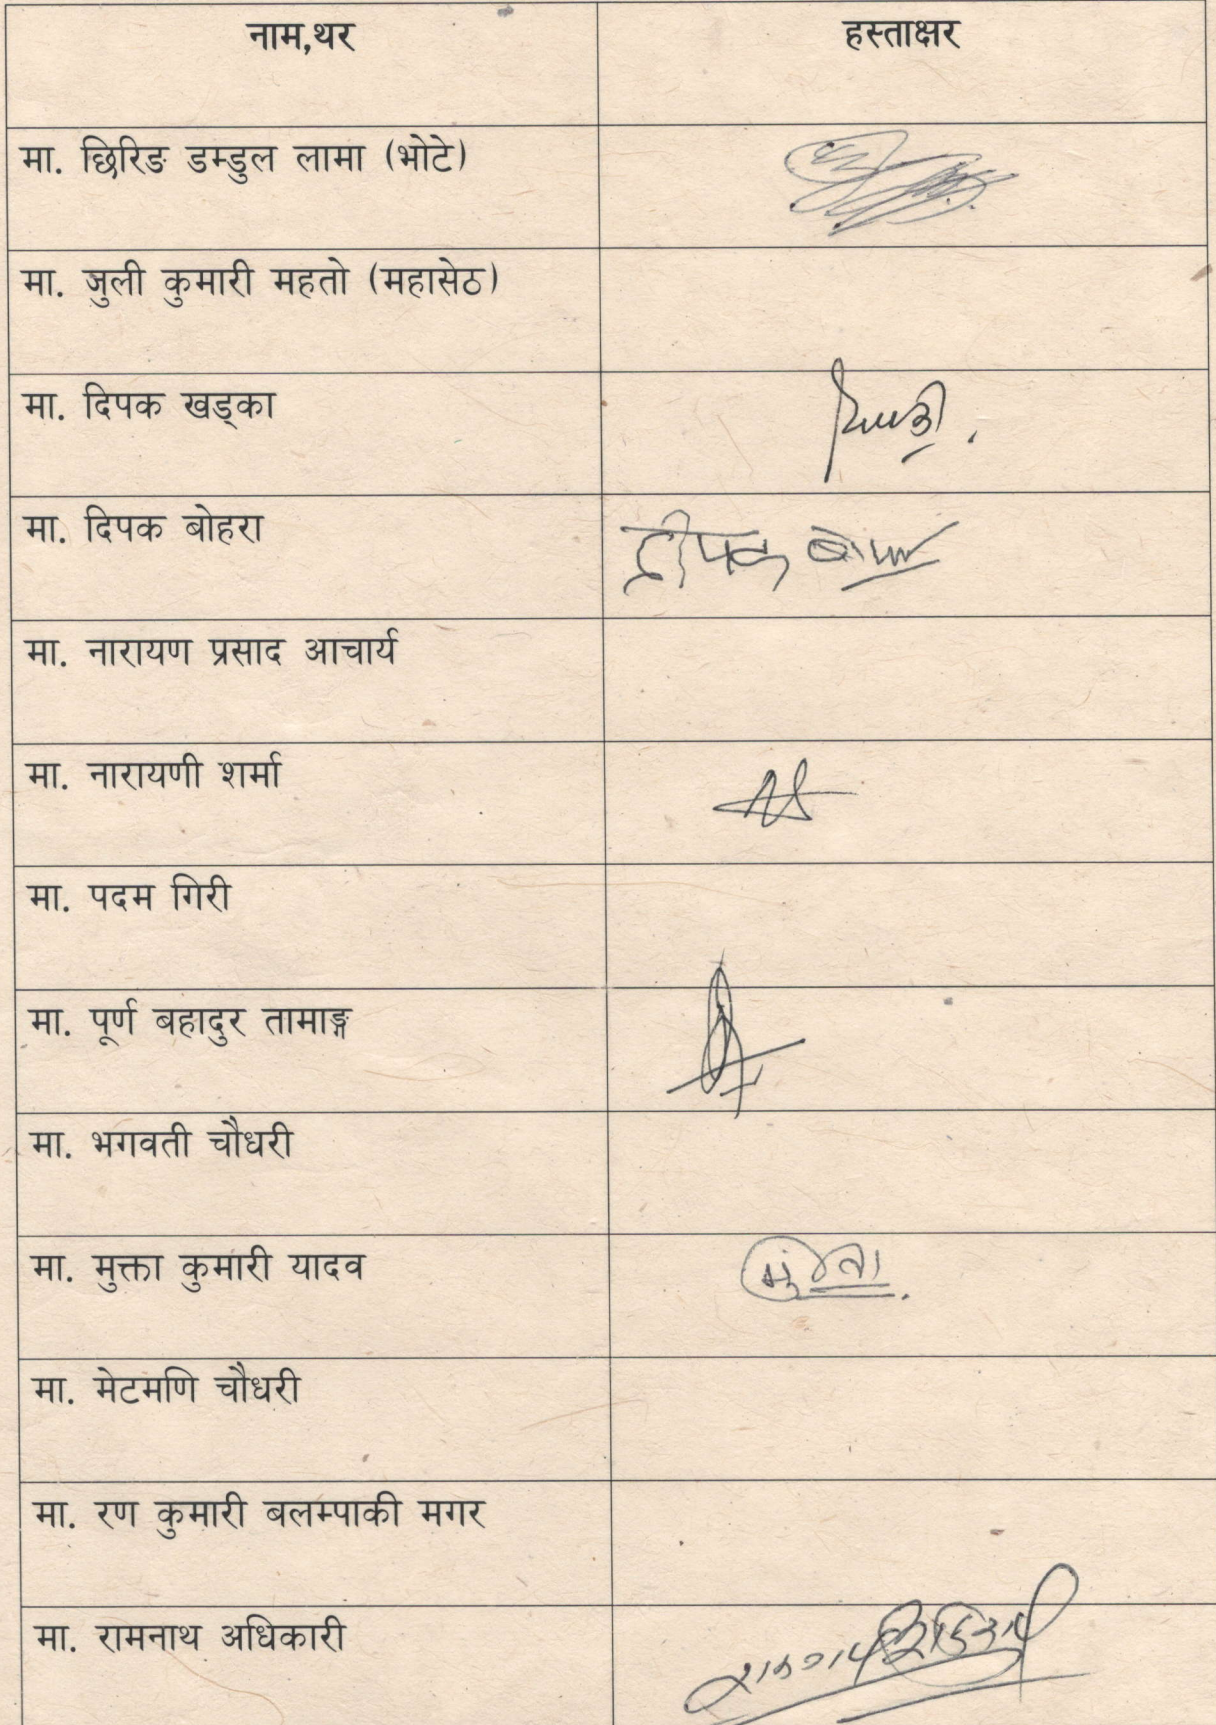 नाम,थर हस्ताक्षर
मा. छिरिङ डम्डुल लामा (भोटे)
मा. जुली कुमारी महतो (महासेठ)
मा. दिपक खड्का
मा. दिपक बोहरा दीपक
मा. नारायण प्रसाद आचार्य
मा. नारायणी शर्मा
मा. पदम गिरी
मा. पूर्ण बहादुर तामाङ्ग
मा. भगवती चौधरी
मा. मुक्ता कुमारी यादव
मा. मेटमणि चौधरी
मा. रण कुमारी बलम्पाकी मगर
मा. रामनाथ अधिकारी